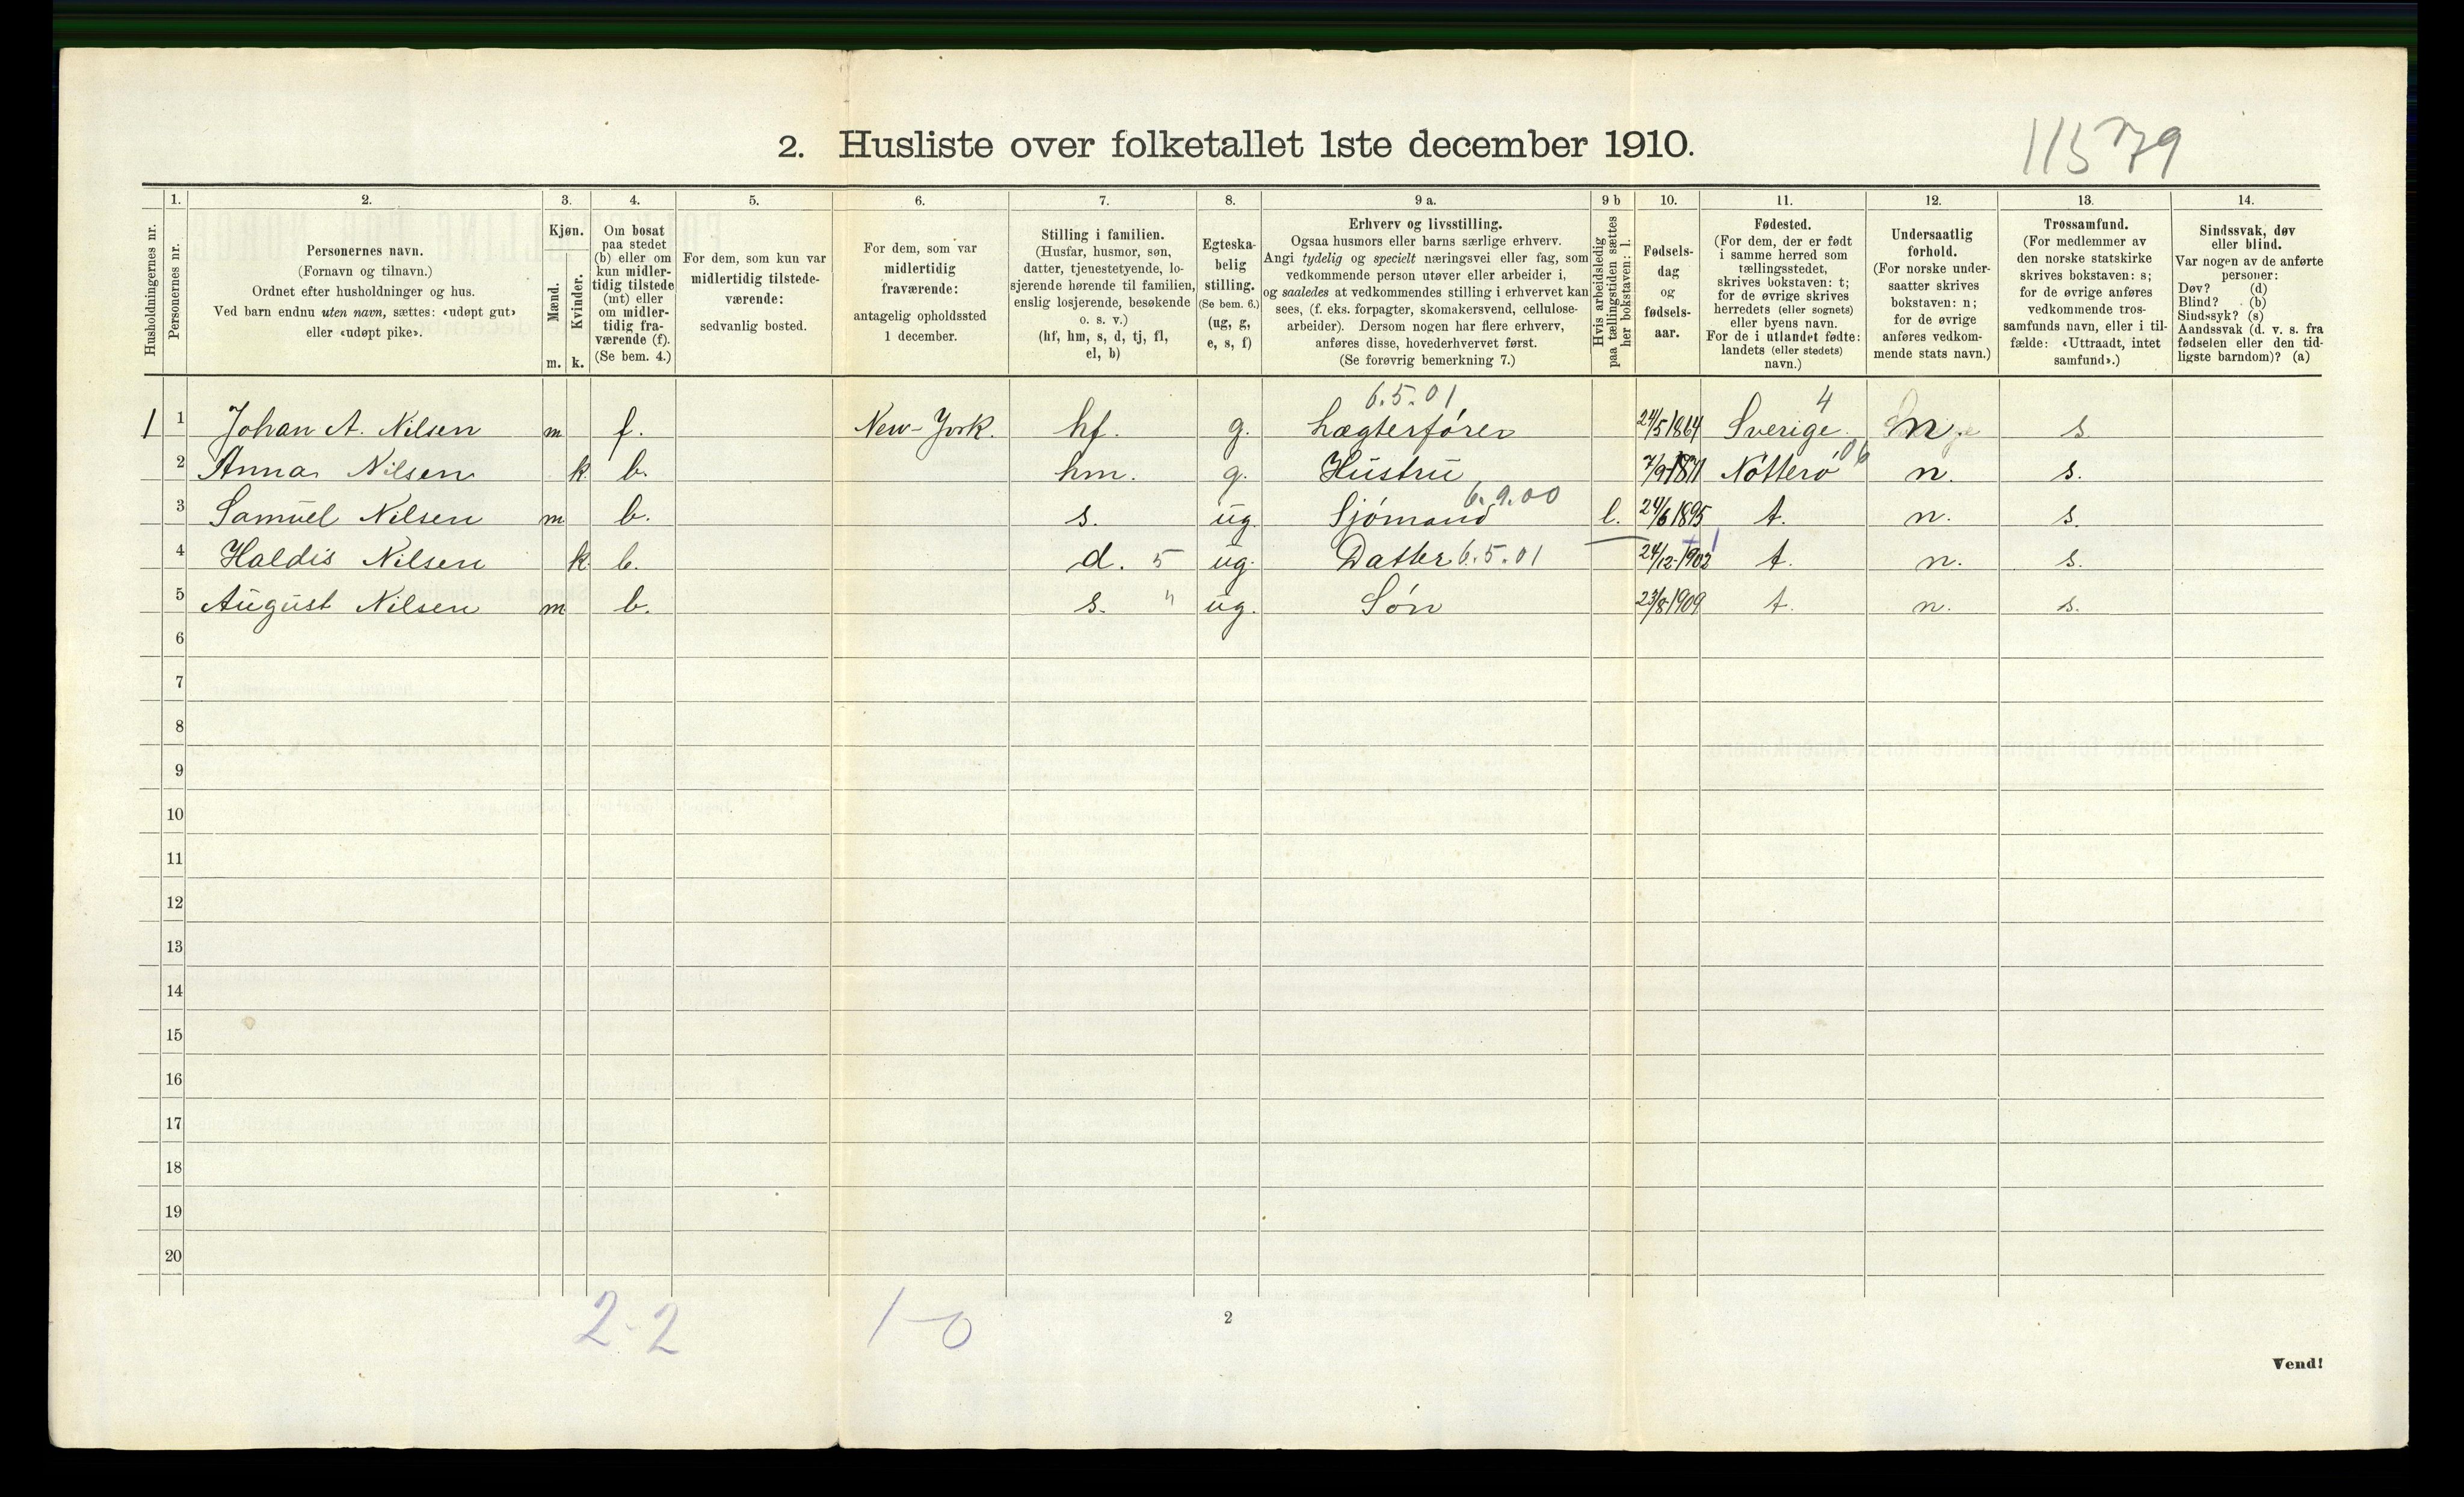 2. Husliste over folketallet 1ste december 1910.
11579
Husholdningernes nr.
1.
Personernes nr.
2.
Personernes navn.
(Fornavn og tilnavn.)
Ordnet efter husholdninger og hus.
Ved barn endnu uten navn, sættes: «udøpt gut»
eller «udøpt pike».
3.
Kjøn.
Mænd.
Kvinder.
m. k.
4.
Om bosat
paa stedet
(b) eller om
kun midler-
tidig tilstede
(mt) eller
om midler-
tidig fra-
værende (f).
(Se bem. 4.)
5.
For dem, som kun var
midlertidig tilstede-
værende:
sedvanlig bosted.
6.
For dem, som var
midlertidig
fraværende:
antagelig opholdssted
1 december.
7.
Stilling i familien.
(Husfar, husmor, søn,
datter, tjenestetyende, lo-
sjerende hørende til familien,
enslig losjerende, besøkende
o. s. v.)
(hf, hm, s, d, tj, fl,
el, b)
8.
Egteska-
belig
stilling.
(Se bem. 6.)
(ug, g,
e, s, f)
9 a.
Erhverv og livsstilling.
Ogsaa husmors eller barns særlige erhverv.
Angi tydelig og specielt næringsvei eller fag, som
vedkommende person utøver eller arbeider i,
og saaledes at vedkommendes stilling i erhvervet kan
sees, (f. eks. forpagter, skomakersvend, cellulose-
arbeider). Dersom nogen har flere erhverv,
anføres disse, hovederhvervet først.
(Se forøvrig bemerkning 7.)
9 b
Hvis arbeidsledig
paa tællingstiden sættes
her bokstaven: l.
10.
Fødsels-
dag
og
fødsels-
aar.
11.
Fødested.
(For dem, der er født
i samme herred som
tællingsstedet,
skrives bokstaven: t;
for de øvrige skrives
herredets (eller sognets)
eller byens navn.
For de i utlandet fødte:
landets (eller stedets)
navn.)
12.
Undersaatlig
forhold.
(For norske under-
saatter skrives
bokstaven: n;
for de øvrige
anføres vedkom-
mende stats navn.)
13.
Trossamfund.
(For medlemmer av
den norske statskirke
skrives bokstaven: s;
for de øvrige anføres
vedkommende tros-
samfunds navn, eller i til-
fælde: «Uttraadt, intet
samfund».)
14.
Sindssvak, døv
eller blind.
Var nogen av de anførte
personer:
Døv? (d)
Blind? (b)
Sindssyk? (s)
Aandssvak (d. v. s. fra
fødselen eller den tid-
ligste barndom)? (a)
6.5.01 4
1 1 Johan A. Nilsen m f. New-York. hf. g. Lægterfører 24/5 1864 Sverige. n. s.
2 Anna Nilsen k b. hm. g. Hustru 7/9-1871 Nötterö 06 n. s.
3 Samuel Nilsen m b. s. ug. Sjömand 6.9.00 l. 24/6 1895 t. n. s.
4 Haldis Nilsen k b. d. 5 ug. Datter 6.5.01 24/12-1902 t. n. s.
5 August Nilsen m b. s. " ug. Sön 23/8-1909 t. n. s.
6
7
8
9
10
11
12
13
14
15
16
17
18
19
20
2-2 1-0
2
Vend!